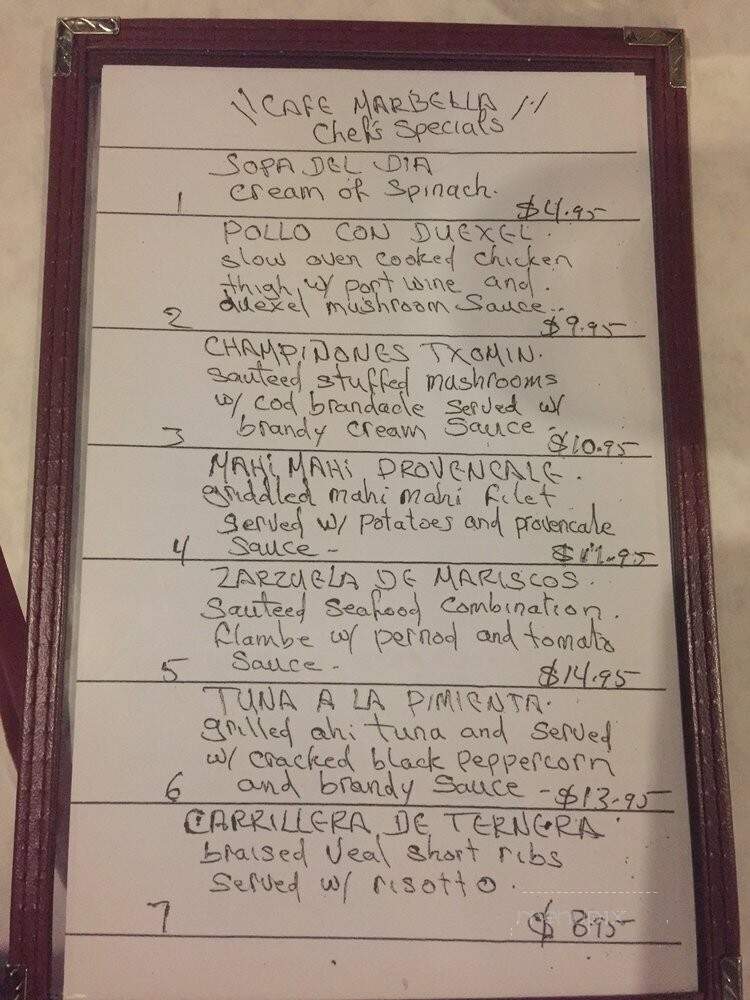 "CAFE MARBELLA"
Chef's Specials
SOPA DEL DIA
cream of Spinach.
1 $4.95
POLLO CON DUEXEL.
slow oven cooked chicken
thigh w/ port wine and.
duexel mushroom Sauce..
2 $9.95
CHAMPIÑONES TXOMIN.
sauteed stuffed mushrooms
w/ cod brandade served w/
brandy cream Sauce -
3 $10.95
MAHI MAHI PROVENCALE.
griddled mahi mahi filet
served w/ potatoes and provencale
4 Sauce - $11.95
ZARZUELA DE MARISCOS.
Sauteed seafood combination.
flambe w/ pernod and tomato
5 Sauce - $14.95
TUNA A LA PIMIENTA.
grilled ahi tuna and served
w/ cracked black peppercorn
6 and brandy Sauce - $13.95
CARRILLERA DE TERNERA
braised veal short ribs
served w/ risotto.
7 $8.95